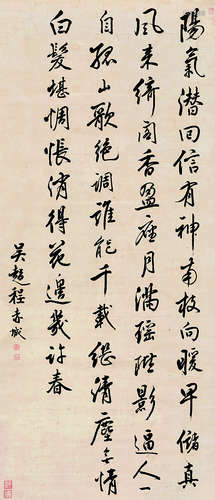 陽氣潛回信有神南枝向暖早儲真
風来綺閣香盈座月滿瑤階影逼人一
自孤山歌絕調誰能千載繼清塵多情
白髮堪惆悵消得花邊幾許春
吳趨程赤城